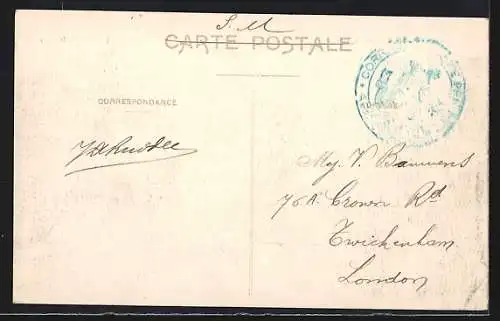 S.M
CARTE POSTALE
CORRESPONDANCE
My. V. Bauwens
76A. Crown Rd
Twickenham
London